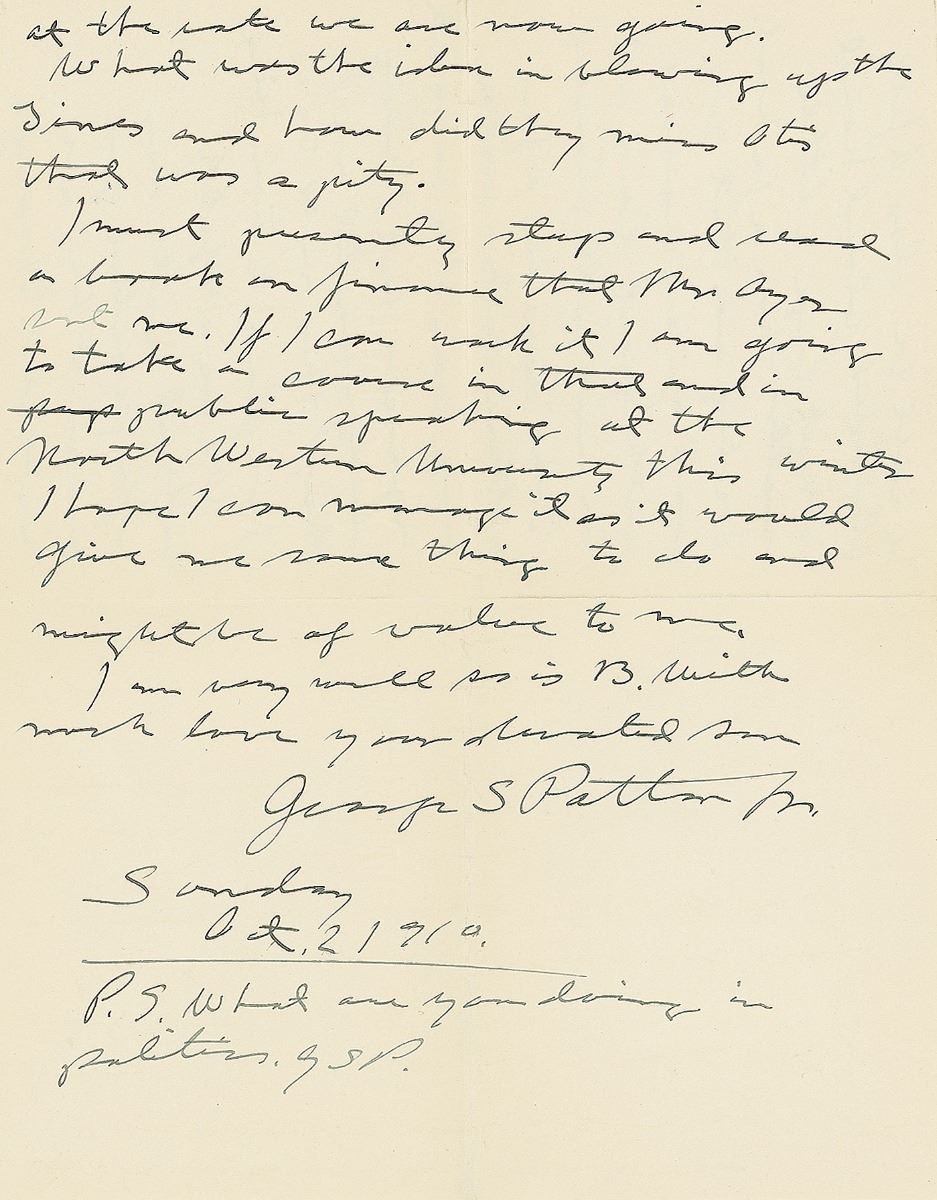 at the rate we are now going.
What was the idea in blowing up the
Times and how did they miss Otis
that was a pity.
I must presently stop and read
a book on finance that Mr. Ayer
sent me. If I can work it I am going
to take a course in that and in
pup public speaking at the
North Western University this winter
I hope I can manage it as it would
give me some thing to do and
might be of value to me.
I am very well so is B. With
much love your devoted son
George S Patton Jr.
Sunday
Oct. 2 1910.
P.S. What are you doing in
politics. G S P.